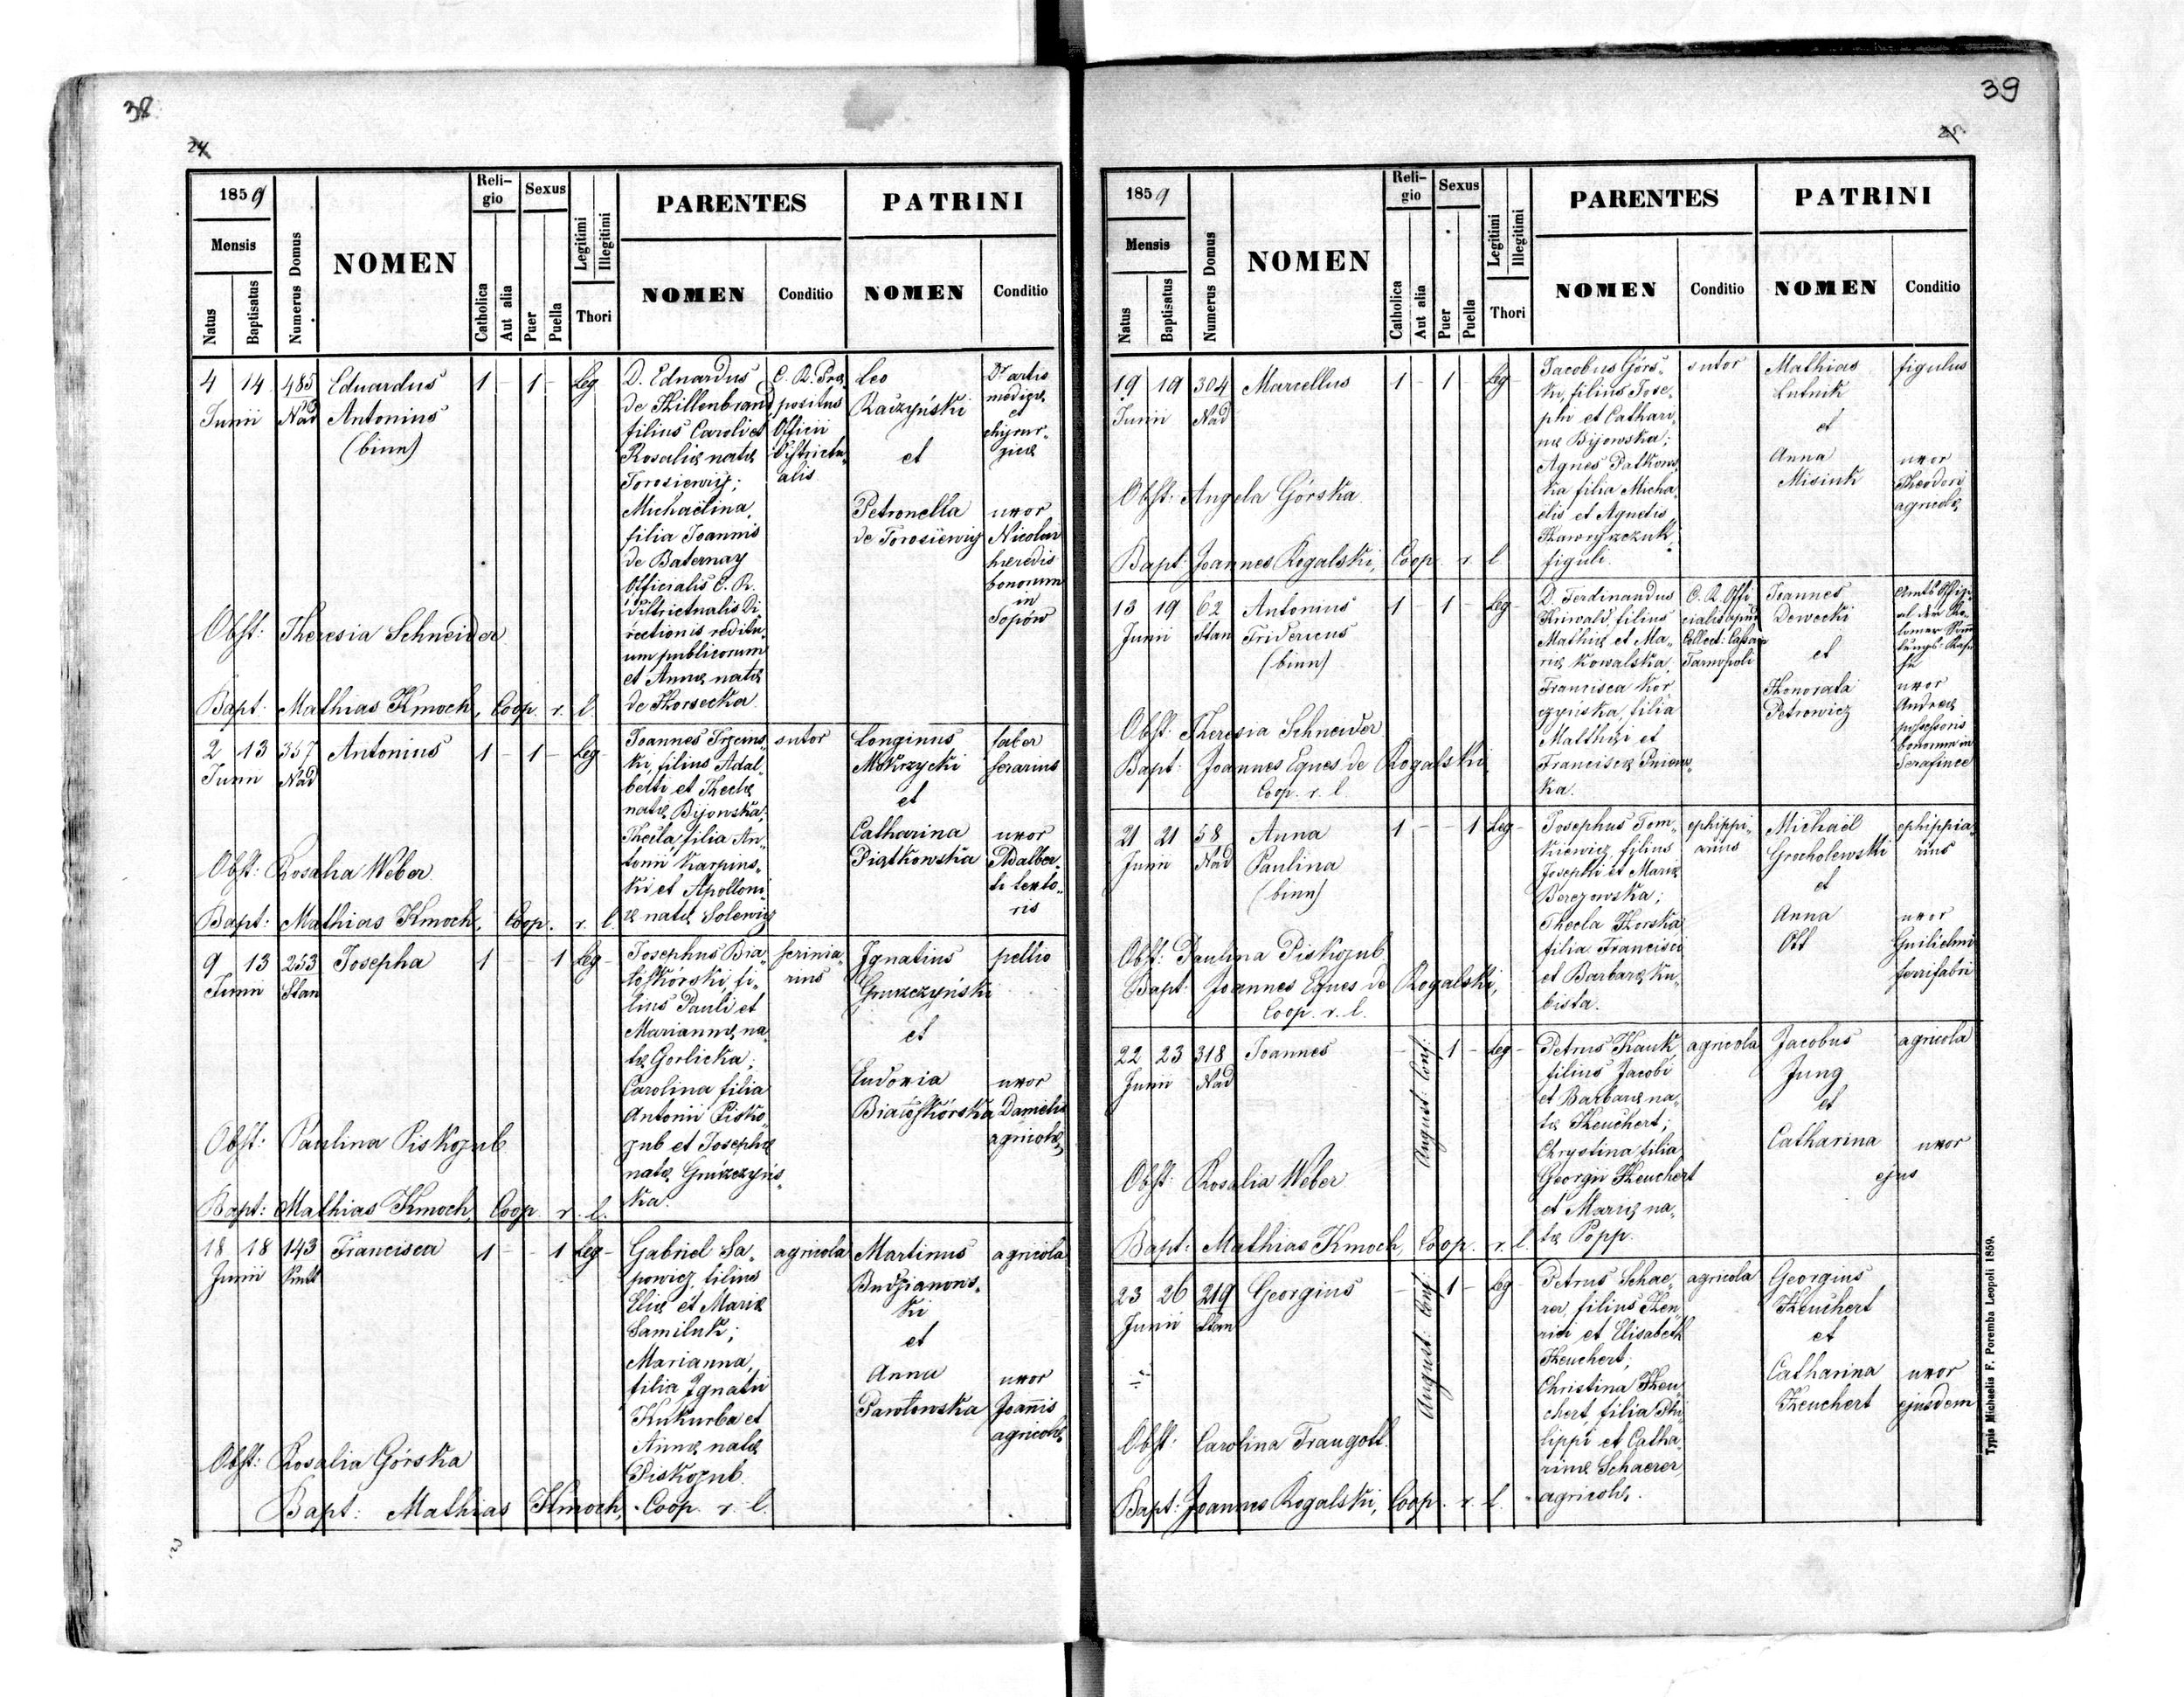 38
24
1859
Mensis
Natus
Baptisatus
Numerus Domus
NOMEN
Reli-
gio
Catholica
Aut alia
Sexus
Puer
Puella
Legitimi
Illegitimi
Thori
PARENTES
NOMEN
Conditio
PATRINI
NOMEN
Conditio
4 14 485 Eduardus 1 - 1 - Leg -
Junii Nad Antonius
(binn)
D. Eduardus
de Hillenbrand
filius Caroli et
Rosaliæ natæ
Torosiewicz;
Michaëlina,
filia Joannis
de Baternay
Officialis C. R.
Districtualis Di
rectionis reditu„
um publicorum
et Annæ natæ
de Korsecka.
C. R. Præ„
positus
Officii
Districtu„
alis
Leo
Raczyński
et
Petronella
de Torosiewicz
Dr artis
medicæ
et
chyrur„
giæ
uxor
Nicolai
heredis
bonorum
in
Sopow
Obst: Theresia Schneider
Bapt: Mathias Kmoch, Coop. r. l.
2 13 357 Antonius 1 - 1 - Leg -
Junii Nad
Joannes Trzcins„
ki, filius Adal„
berti et Theclæ
natæ Bijowska;
Thecla, filia An„
tonii Karpins„
ki et Apolloni„
æ natæ Solewicz
sutor
Longinus
Mokrzycki
et
Catharina
Piątkowska
faber
ferarius
uxor
Adalber„
ti texto„
ris
Obst: Rosalia Weber
Bapt: Mathias Kmoch, Coop. r. l.
9 13 253 Josepha 1 - - 1 Leg -
Junii Stan
Josephus Bia„
łoskórski, fi„
lius Pauli et
Mariannæ, na„
tæ Gorlicka;
Carolina filia
Antonii Pisko„
zub et Josephæ
natæ Gruszczyńs„
ka.
scrinia„
rius
Ignatius
Gruszczyński
et
Eudoxia
Białoskórska
pellio
uxor
Danielis
agricolæ
Obst: Paulina Piskozub
Bapt: Mathias Kmoch, Coop. r. l.
18 18 143 Francisca 1 - - 1 Leg -
Junii
Gabriel Sa„
powicz, filius
Eliæ et Mariæ
Samiluk;
Marianna,
filia Ignatii
Kukurba et
Annæ natæ
Piskozub.
agricola
Martinus
Budzianows„
ki
et
Anna
Pawłowska
agricola
uxor
Joannis
agricolæ
Obst: Rosalia Górska
Bapt: Mathias Kmoch, Coop. r. l.
39
25
1859
Mensis
Natus
Baptisatus
Numerus Domus
NOMEN
Reli-
gio
Catholica
Aut alia
Sexus
Puer
Puella
Legitimi
Illegitimi
Thori
PARENTES
NOMEN
Conditio
PATRINI
NOMEN
Conditio
19 19 304 Marcellus 1 - 1 - Leg -
Junii Nad
Jacobus Górs„
ki, filius Jose„
phi et Cathari„
næ Bijowska;
Agnes Patkows„
ka filia Micha„
elis et Agnetis
Hawryszczuk,
figuli.
sutor
Mathias
Lutnik
et
Anna
Misiuk
figulus
uxor
Theodori
agricolæ
Obst: Angela Górska
Bapt: Joannes Rogalski, Coop. r. l.
13 19 62 Antonius 1 - 1 - Leg -
Junii Stan Fridericus
(binn)
D. Ferdinandus
Kriwald, filius
Mathiæ et Ma„
riæ Kowalska;
Francisca Kor„
czyńska, filia
Matthæi et
Franciscæ Pniews„
ka.
C. R. Offi
cialis apud
Collect: Cassam
Tarnopoli
Joannes
Dewecki
et
Honorata
Petrowicz
Amts Offizi„
al der Ko„
lomear Sam„
lungs-Kas„
se
uxor
Andreæ
possessoris
bonorum in
Serafince
Obst: Theresia Schneider
Bapt: Joannes Eques de Rogalski,
Coop. r. l.
21 21 58 Anna 1 - - 1 Leg -
Junii Nad Paulina
(binn)
Josephus Tom„
kiewicz, filius
Josephi et Mariæ
Berezowska;
Thecla Horska
filia Francisci
et Barbaræ Ku„
bista.
ephippi„
arius
Michaël
Grocholewski
et
Anna
Ott
ephippia„
rius
uxor
Guilielmi
ferrifabri
Obst: Paulina Piskozub
Bapt: Joannes Eques de Rogalski,
Coop. r. l.
22 23 318 Joannes - August: Conf: 1 - Leg -
Junii Nad
Petrus Hauk,
filius Jacobi
et Barbaræ na„
tæ Heuchert;
Chrystina filia
Georgii Heuchert
et Mariæ na„
tæ Popp.
agricola
Jacobus
Jung
et
Catharina
agricola
uxor
ejus
Obst: Rosalia Weber
Bapt: Mathias Kmoch, Coop. r. l.
23 26 219 Georgius - August: Conf: 1 - Leg -
Junii Stan
Petrus Schae„
rer, filius Hen„
rici et Elisabeth
Heuchert;
Christina Heu„
chert, filia Phi„
lippi et Catha„
rinæ Schaerer,
agricolæ.
agricola
Georgius
Heuchert
et
Catharina
Heuchert
uxor
ejusdem
Obst: Carolina Traugott.
Bapt: Joannes Rogalski, Coop. r. l.
Typis Michaelis F. Poremba Leopoli 1859.